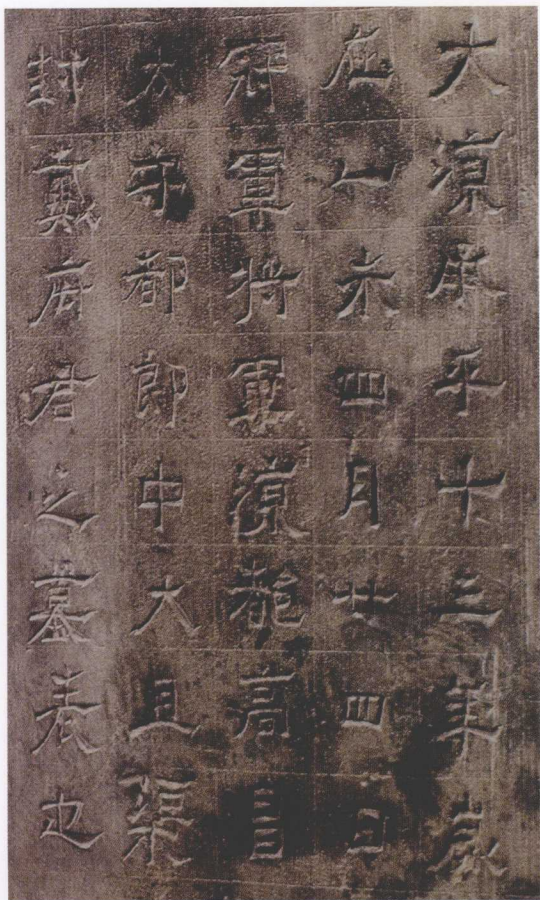 大涼承平十三年歲
在乙未四月廿四日
冠軍將軍涼都高昌
太守都郎中大且渠
封戴府君之墓表也